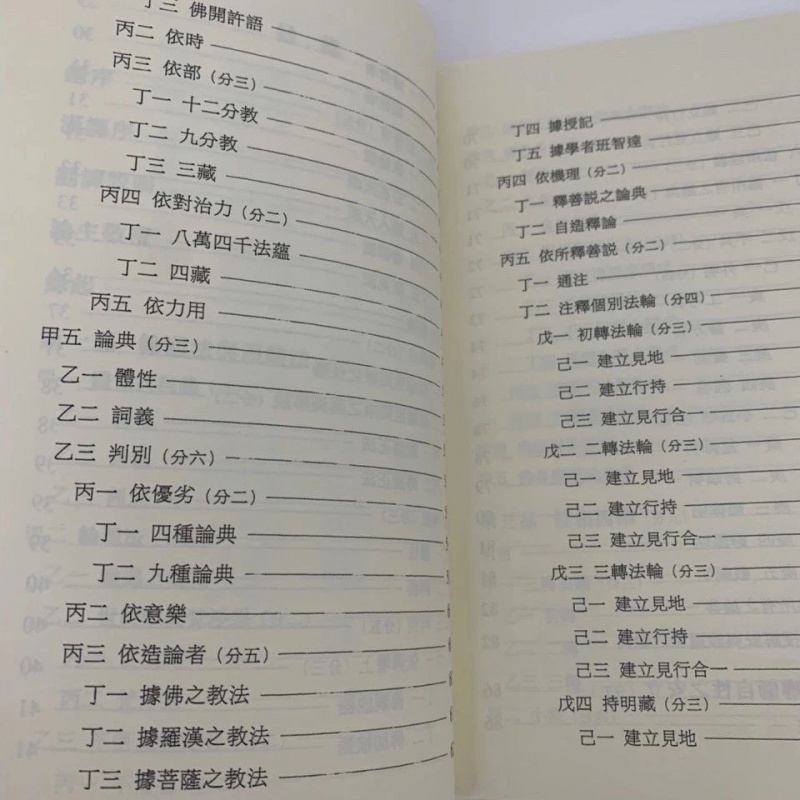 丁三 佛開許語
丙二 依時
丙三 依部（分三）
丁一 十二分教
丁二 九分教
丁三 三藏
丙四 依對治力（分二）
丁一 八萬四千法蘊
丁二 四藏
丙五 依力用
甲五 論典（分三）
乙一 體性
乙二 詞義
乙三 判別（分六）
丙一 依優劣（分二）
丁一 四種論典
丁二 九種論典
丙二 依意樂
丙三 依造論者（分五）
丁一 據佛之教法
丁二 據羅漢之教法
丁三 據菩薩之教法
丁四 據授記
丁五 據學者班智達
丙四 依機理（分二）
丁一 釋善説之論典
丁二 自造釋論
丙五 依所釋善説（分二）
丁一 通注
丁二 注釋個別法輪（分四）
戊一 初轉法輪（分三）
己一 建立見地
己二 建立行持
己三 建立見行合一
戊二 二轉法輪（分三）
己一 建立見地
己二 建立行持
己三 建立見行合一
戊三 三轉法輪（分三）
己一 建立見地
己二 建立行持
己三 建立見行合一
戊四 持明藏（分三）
己一 建立見地